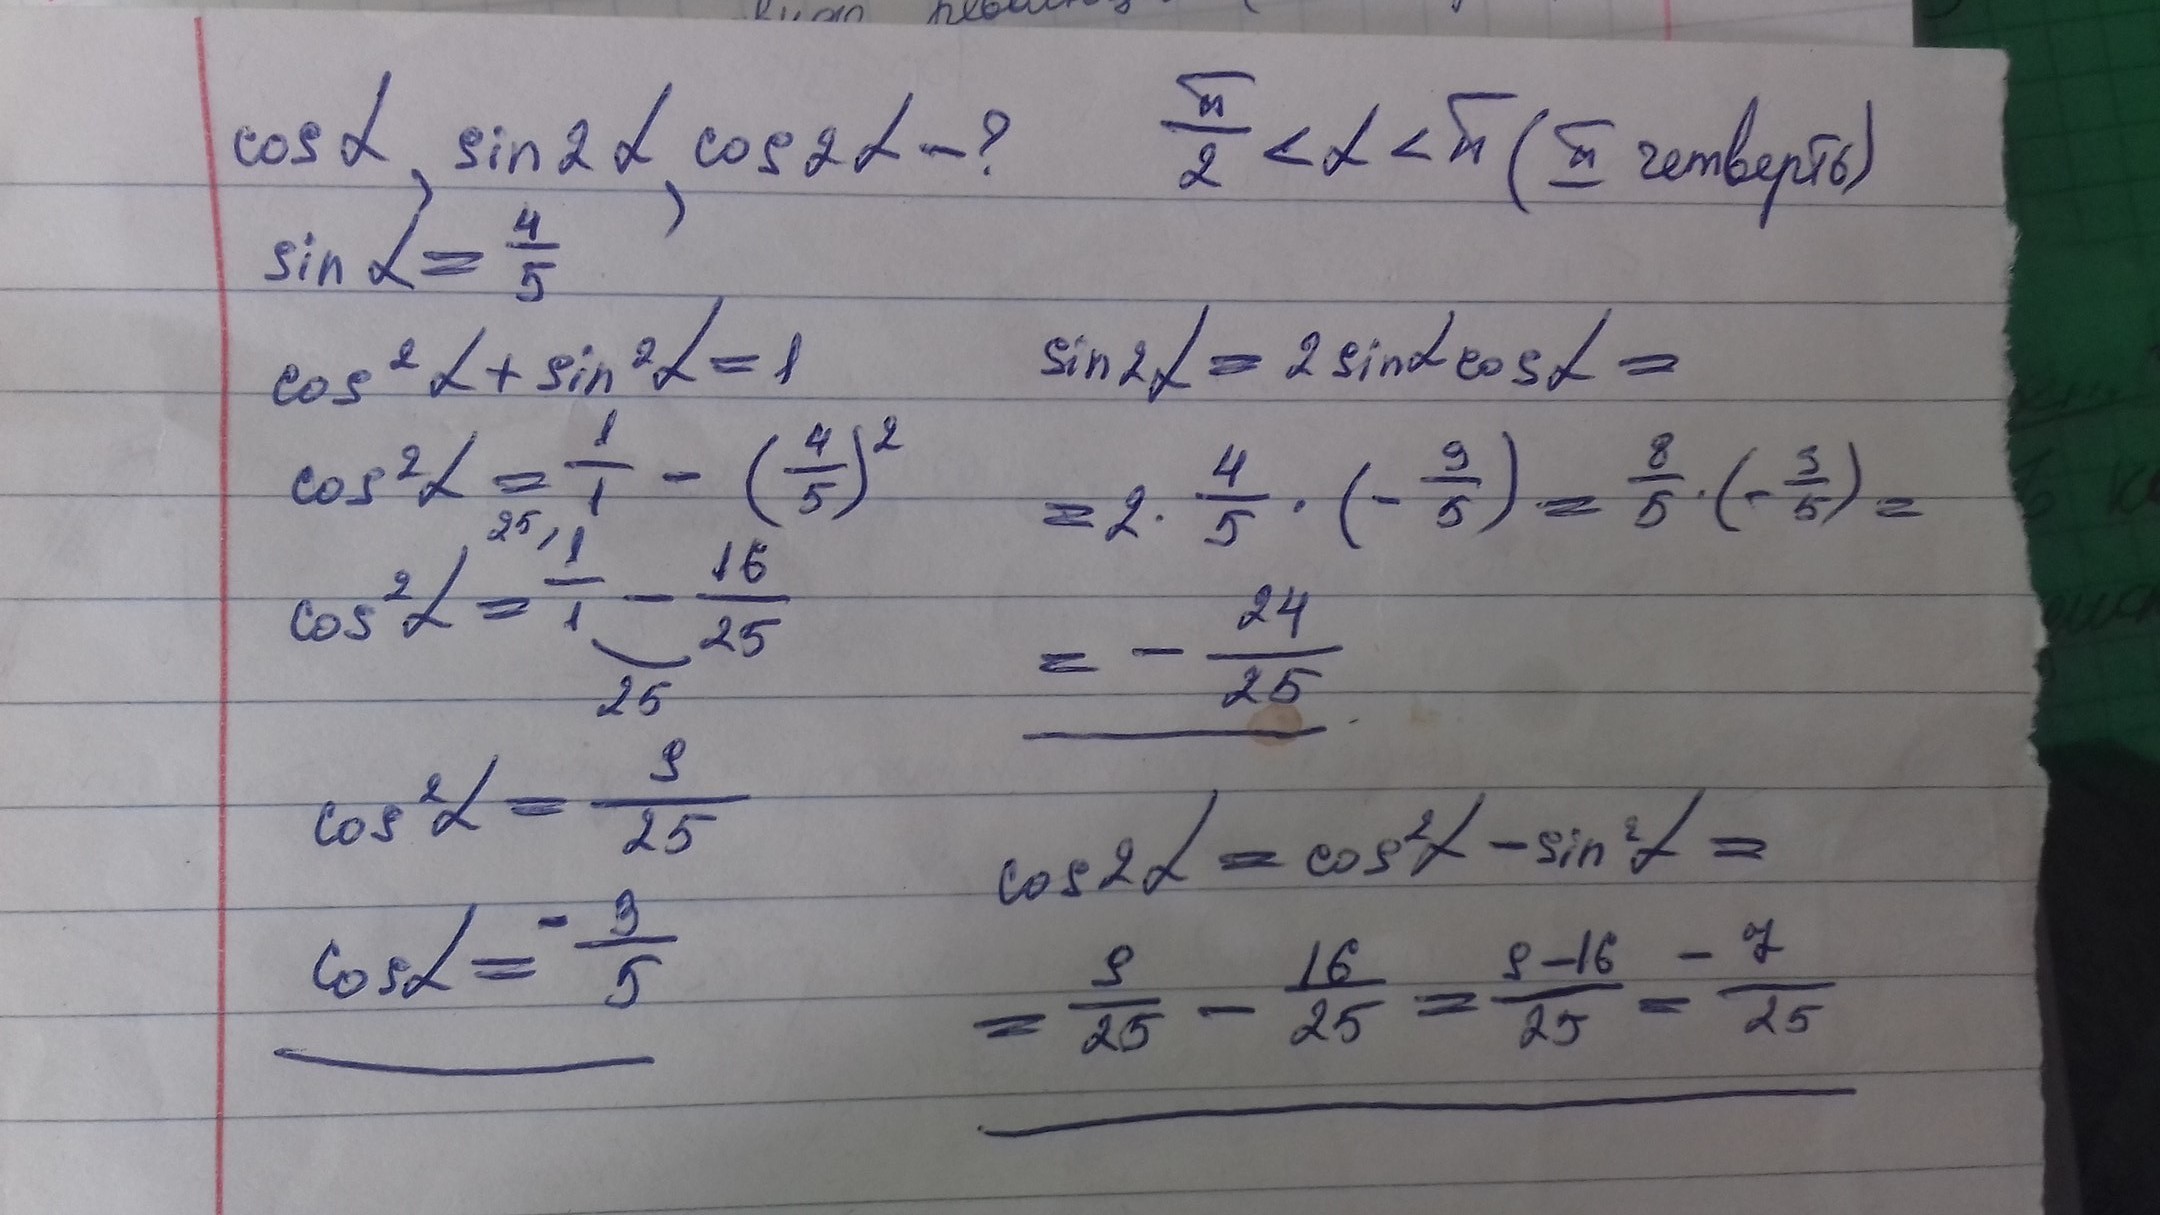 cosα, sin2α, cos2α - ? π/2 < α < π (II четверть)
sinα = 4/5
cos²α + sin²α = 1
cos²α = 1/1 - (4/5)²
cos²α = ²⁵⁾1/1 - 16/25
25
cos²α = 9/25
cosα = -3/5
sin2α = 2sinα cosα =
= 2 · 4/5 · (-3/5) = 8/5 · (-3/5) =
= - 24/25
cos2α = cos²α - sin²α =
= 9/25 - 16/25 = 9-16/25 = -7/25